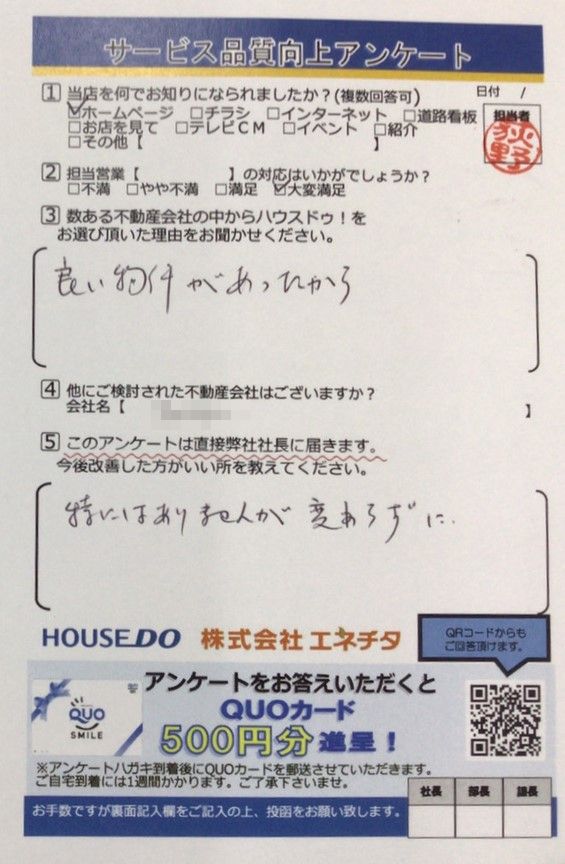 サービス品質向上アンケート
1 当店を何でお知りになられましたか？(複数回答可)
日付 /
☑ホームページ □チラシ □インターネット □道路看板
□お店を見て □テレビCM □イベント □紹介
□その他【 】
担当者
荻野
2 担当営業【 】の対応はいかがでしょうか？
□不満 □やや不満 □満足 ☑大変満足
3 数ある不動産会社の中からハウスドゥ！を
お選び頂いた理由をお聞かせください。
良い物件があったから
4 他にご検討された不動産会社はございますか？
会社名【 】
5 このアンケートは直接弊社社長に届きます。
今後改善した方がいい所を教えてください。
特にはありませんが変わらずに.
HOUSEDO 株式会社 エネチタ
QRコードからも
ご回答頂けます。
アンケートをお答えいただくと
QUOカード
500円分 進呈！
QUO
SMILE
※アンケートハガキ到着後にQUOカードを郵送させていただきます。
ご自宅到着には1週間かかります。ご了承下さいませ。
社長 部長 課長
お手数ですが裏面記入欄をご記入の上、投函をお願い致します。